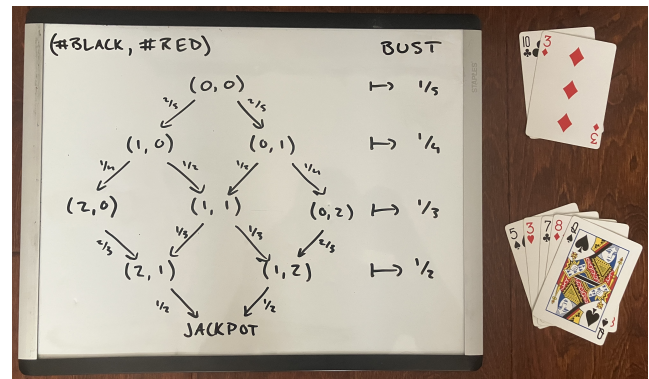 (#BLACK, #RED) BUST
(0,0) ↦ 1/5
2/5 2/5
(1,0) (0,1) ↦ 1/4
1/4 1/2 1/2 1/4
(2,0) (1,1) (0,2) ↦ 1/3
2/3 1/3 1/3 2/3
(2,1) (1,2) ↦ 1/2
1/2 1/2
JACKPOT
STAPLES
10 3
3
5 3 7 8 Q
Q